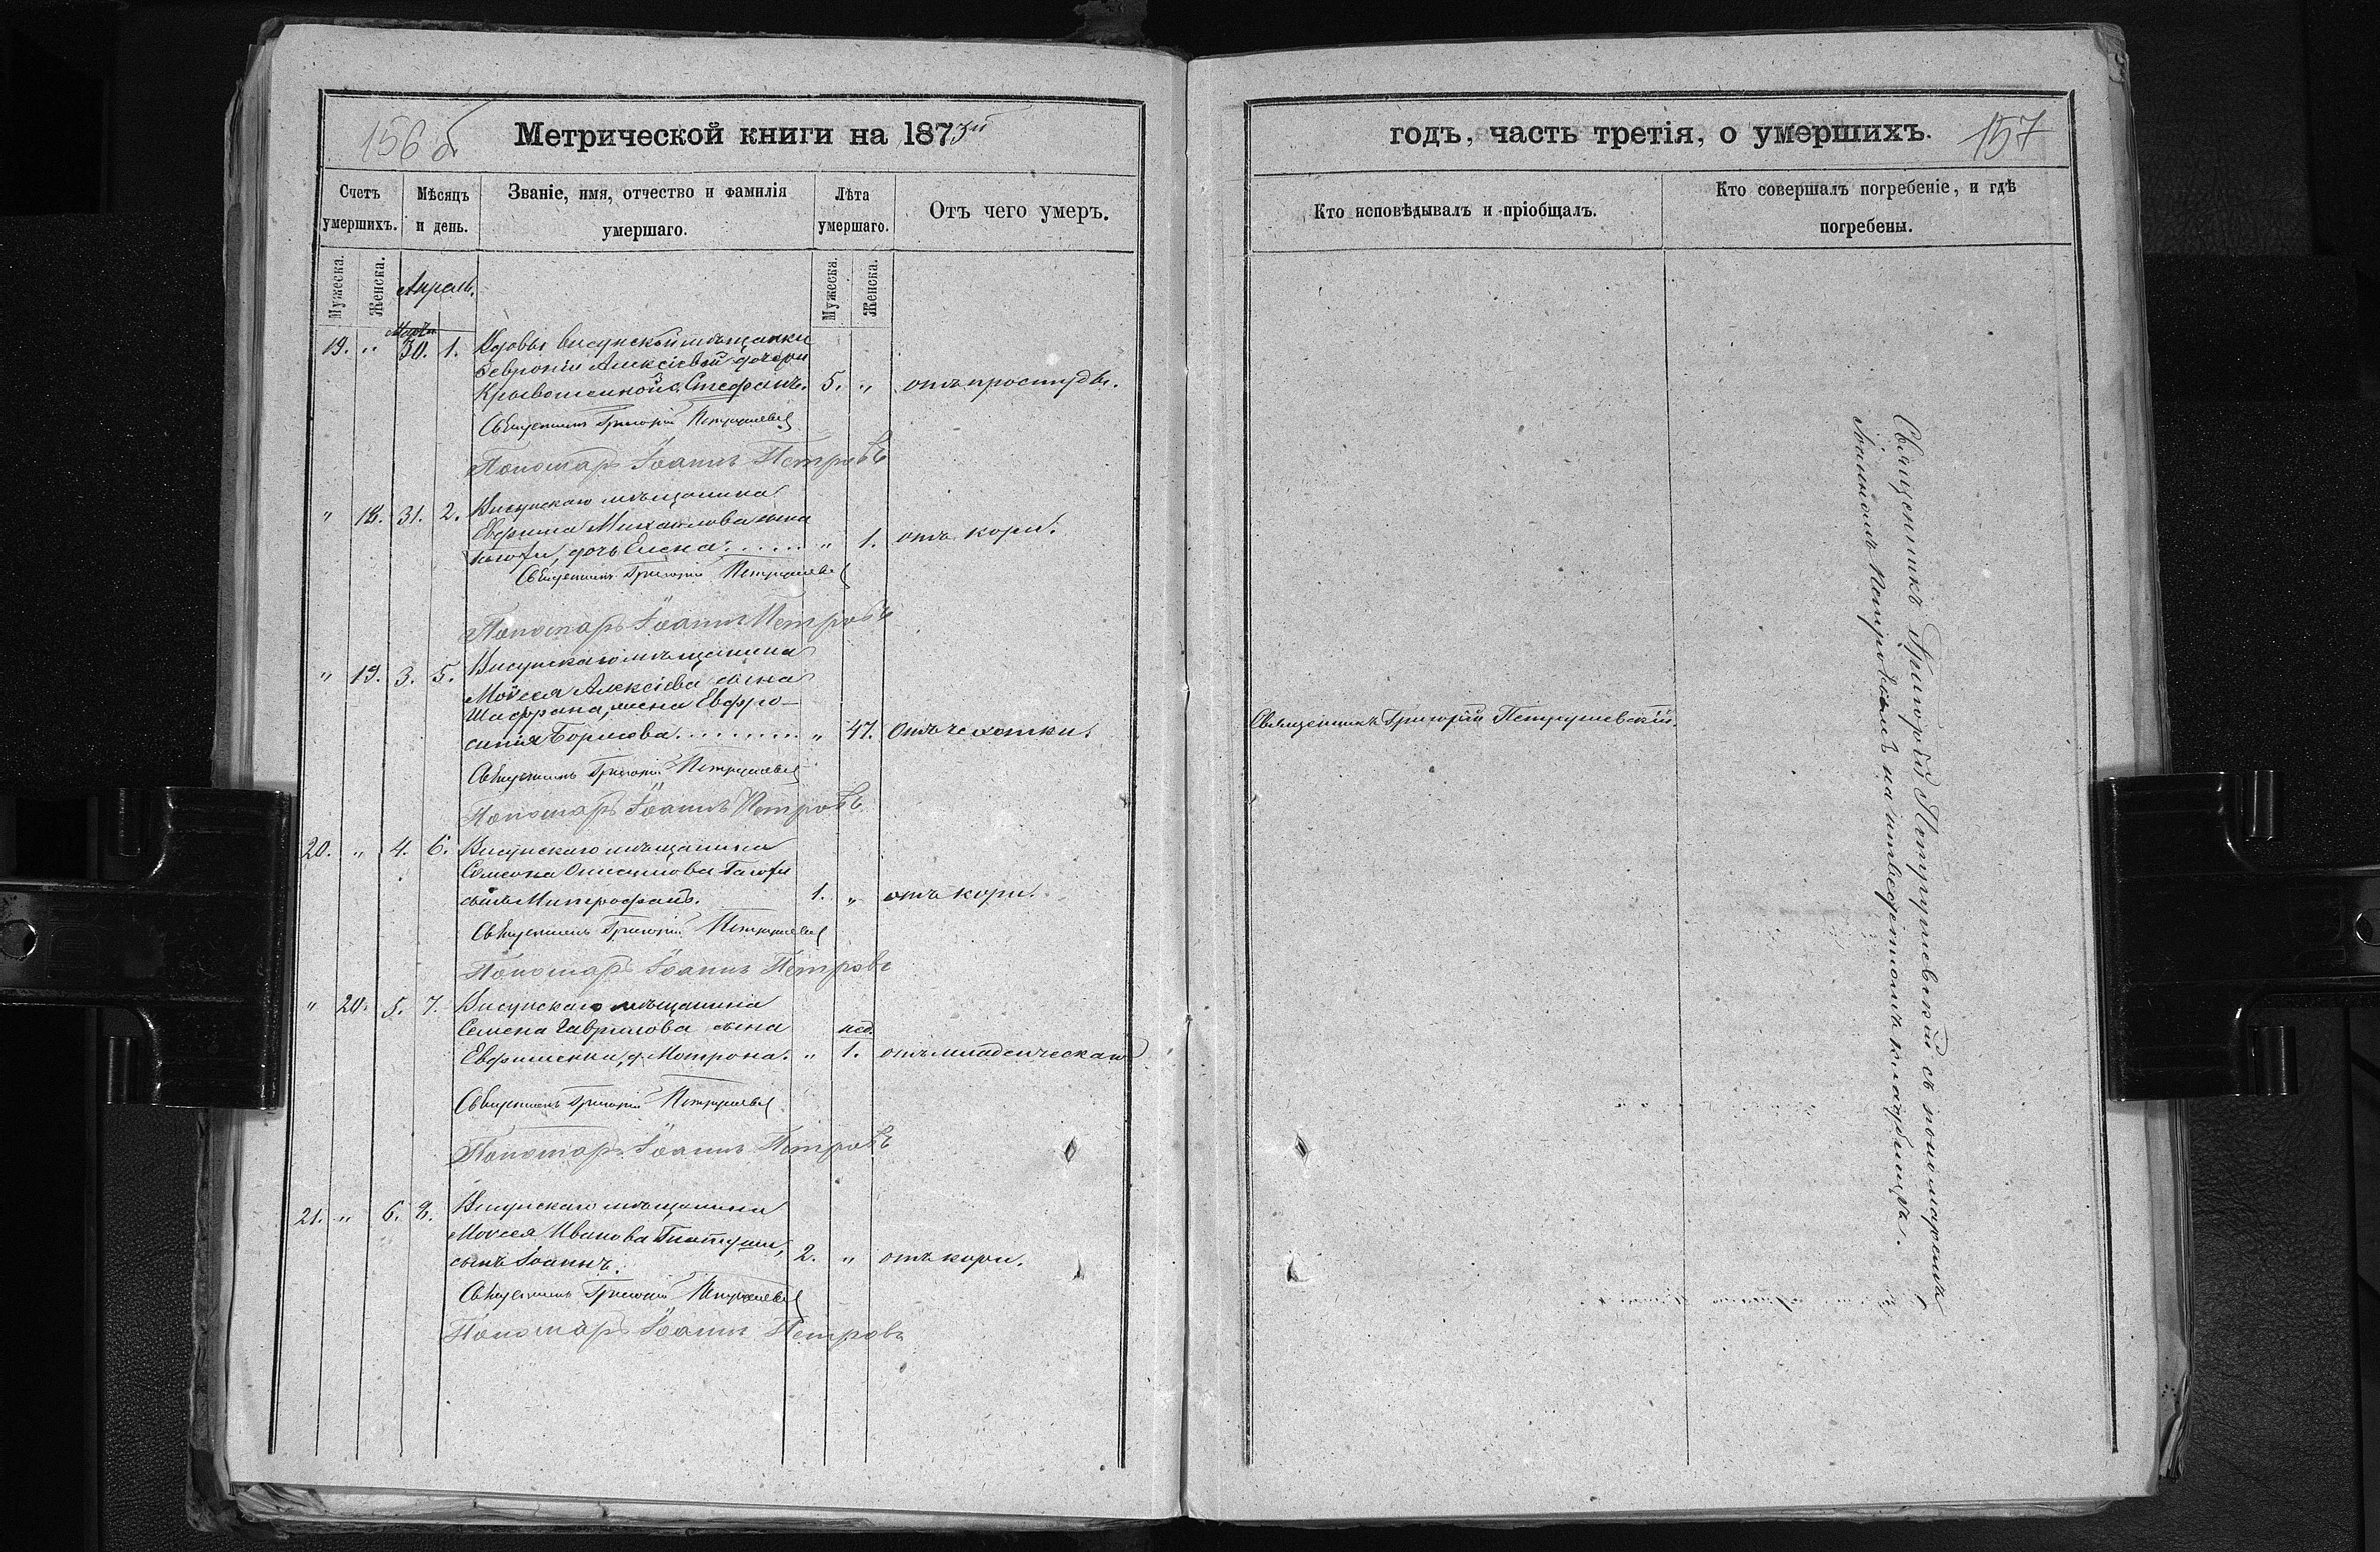 156 б
Метрической книги на 1873й
Счетъ умершихъ.
Мѣсяцъ и день.
Званіе, имя, отчество и фамилія умершаго.
Лѣта умершаго.
Отъ чего умеръ.
Мужеска.
Женска.
Апрель.
Мужеска.
Женска.
Мартъ
19. " 30. 1. Вдовы висунской мѣщанки
Февроніи Алексіевой дочери
Стефанъ. 5. " отъ простуды.
Священникъ Григорій Петрушевскі
Пономарь Іоаннъ Петровъ
" 18. 31. 2. Висунскаго мѣщанина
Евфима Михаилова сына
дочь Елена. " 1. отъ кори.
Священникъ Григорій Петрушевскі
Пономарь Іоаннъ Петровъ
" 19. 3. 5. Висунскаго мѣщанина
Моѵсея Алексіева сына
Шафрана, жена Евфро-
синія Борисова. " 47. Отъ чахотки.
Священникъ Григорій Петрушевскі
Пономарь Іоаннъ Петровъ
20. " 4. 6. Висунскаго мѣщанина
Симеона
сынъ Митрофанъ. 1. " отъ кори.
Священникъ Григорій Петрушевскі
Пономарь Іоаннъ Петровъ
" 20. 5. 7. Висунскаго мѣщанина
Семена Гаврилова сына нед.
Евфименка, д. Мотрона. " 1. отъ младенческаго
Священникъ Григорій Петрушевскі
Пономарь Іоаннъ Петровъ
21. " 6. 8. Висунскаго мѣщанина
Моѵсея Иванова
сынъ Іоаннъ. 2. " отъ кори.
Священникъ Григорій Петрушевскі
Пономарь Іоаннъ Петровъ
годъ, часть третія, о умершихъ.
157
Кто исповѣдывалъ и пріобщалъ.
Кто совершалъ погребеніе, и гдѣ погребены.
Священникъ Григорій Петрушевскій.
Священникъ Григорій Петрушевскій съ пономаремъ
Іоанномъ Петровымъ на приходскомъ кладбищѣ.